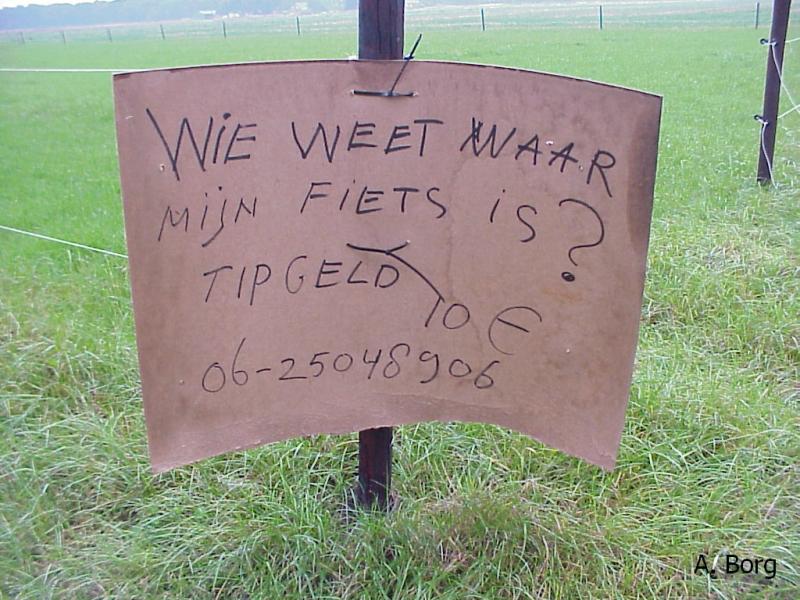 WiE WEET WAAR
MijN FiETS iS?
TIPGELD
10 €
06-25048906
A. Borg